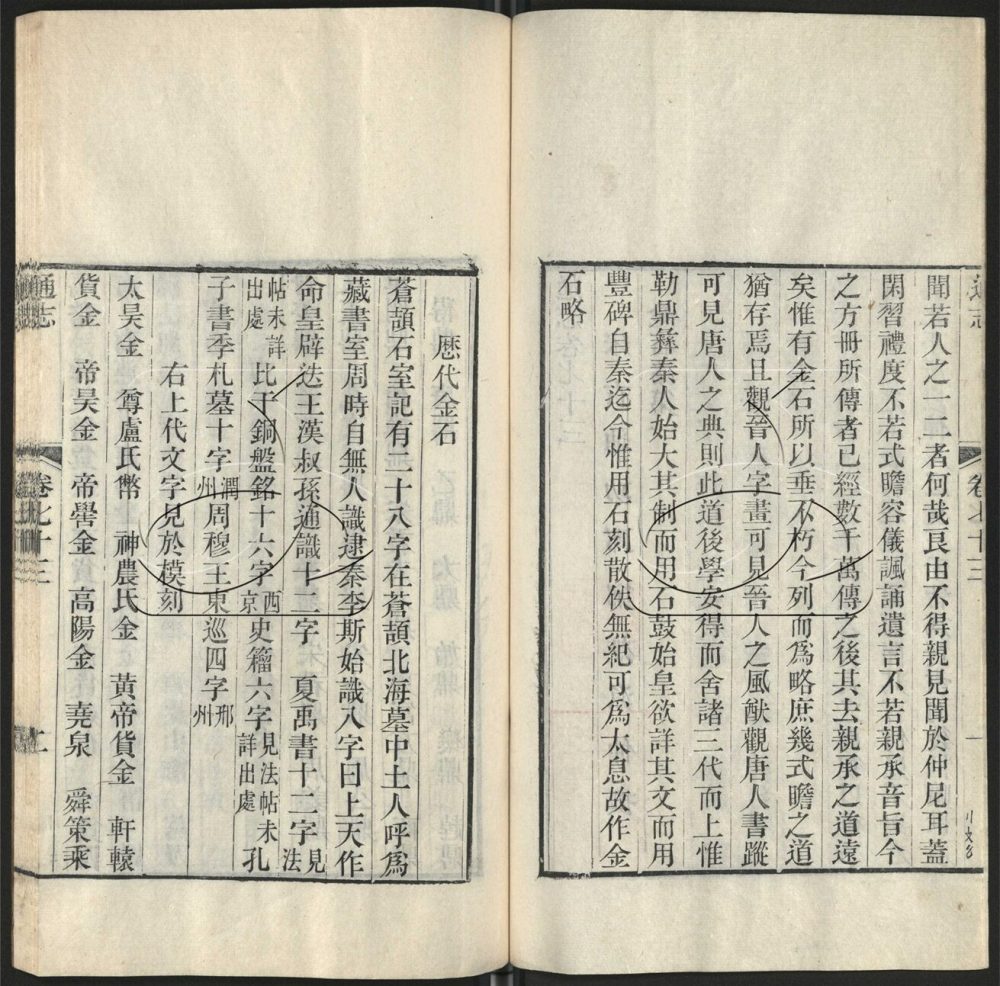 通志
卷七十三
一
聞若人之一二者何哉良由不得親見聞於仲尼耳蓋
閑習禮度不若式瞻容儀諷誦遺言不若親承音旨今
之方冊所傳者已經數千萬傳之後其去親承之道遠
矣惟有金石所以垂不朽今列而為略庶幾式瞻之道
猶存焉且觀晉人字畫可見晉人之風猷觀唐人書蹤
可見唐人之典則此道後學安得而舍諸三代而上惟
勒鼎彝秦人始大其制而用石鼓始皇欲詳其文而用
豐碑自秦迄今惟用石刻散佚無紀可為太息故作金
石略
歷代金石
蒼頡石室記有二十八字在蒼頡北海墓中土人呼為
藏書室周時自無人識逮秦李斯始識八字曰上天作
命皇辟迭王漢叔孫通識十二字　夏禹書十二字見法
帖未詳出處　比干銅盤銘十六字西京　史籀六字見法帖未詳出處　孔
子書季札墓十字潤州　周穆王東巡四字邢州
右上代文字見於模刻
太昊金　尊盧氏幣　神農氏金　黃帝貨金　軒轅
貨金　帝昊金　帝嚳金　高陽金　堯泉　舜策乘
通志
卷七十三
二